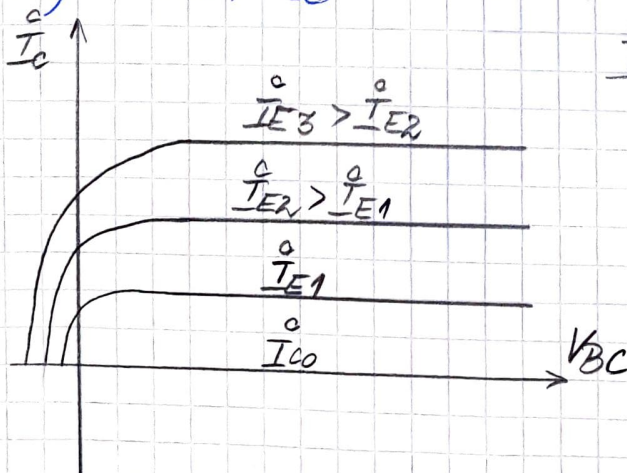 I̊c
I̊E3 > I̊E2
I̊E2 > I̊E1
I̊E1
I̊co
VBC